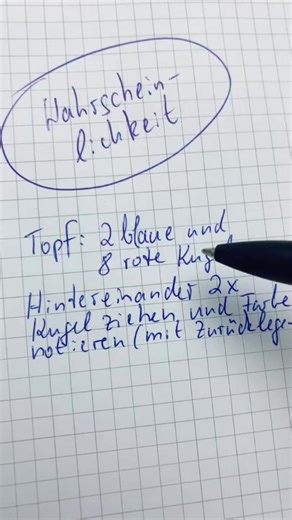 Wahrschein-
lichkeit
Topf: 2 blaue und
8 rote Kugel
Hintereinander 2x
Kugel ziehen und Farbe
notieren (mit Zurücklege-